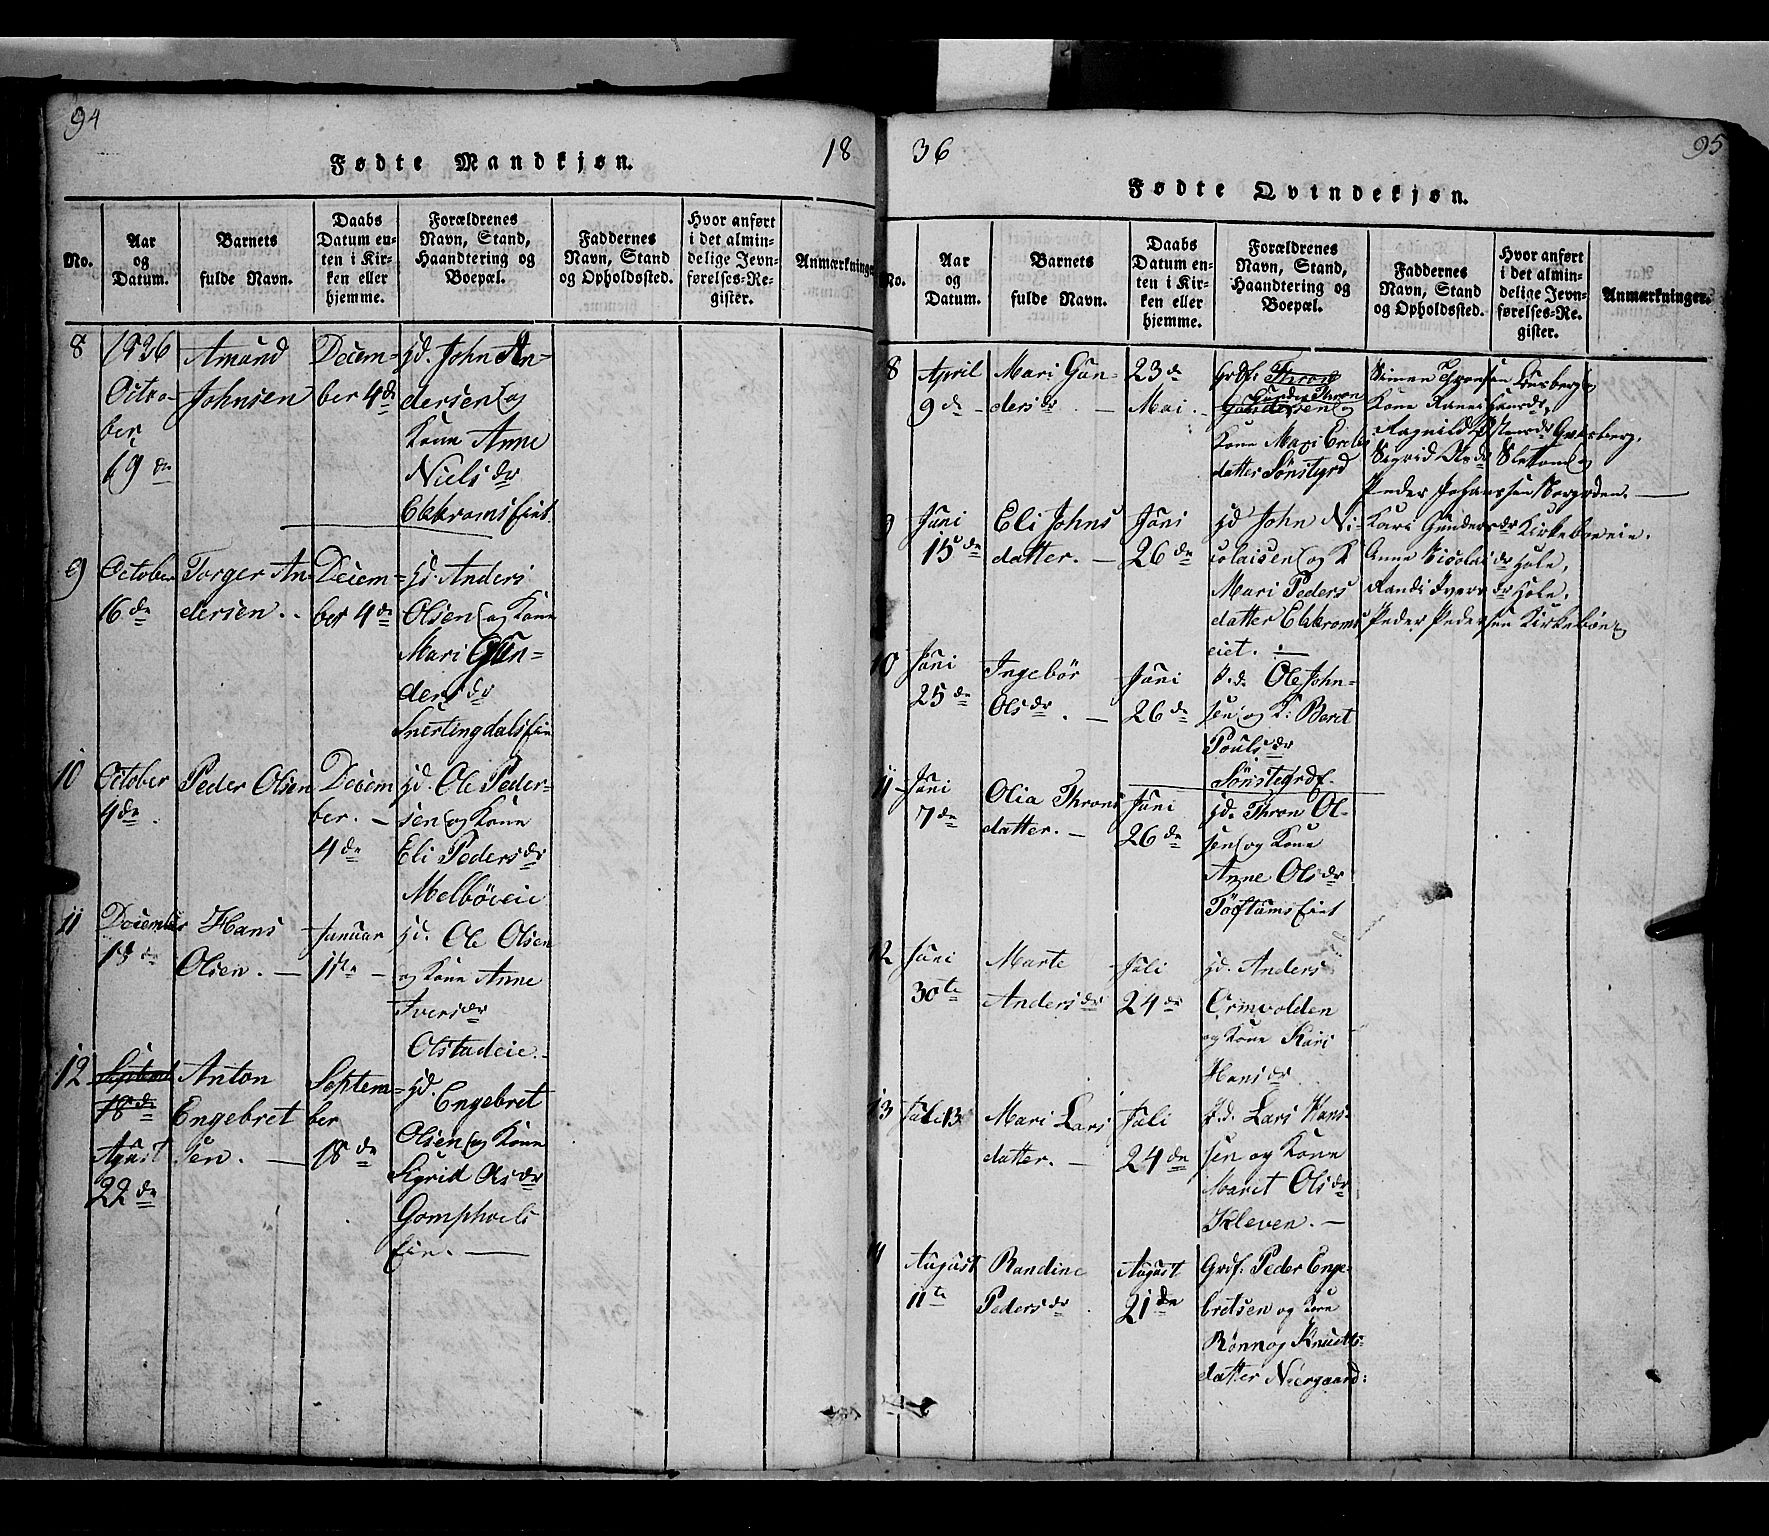 94
18
Fødte Mandkjøn.
No.
Aar
og
Datum.
Barnets
fulde Navn.
Daabs
Datum en-
ten i Kir-
ken eller
hjemme.
Forældrenes
Navn, Stand,
Haandtering og
Boepæl.
Faddernes
Navn, Stand
og Opholdssted.
Hvor anført
i det almin-
delige Jevn-
førelses-Re-
gister.
Anmærkninger
8
1836
Octo-
ber
19 de
Amund
Johnsen
Decem-
ber 4 de
Hd. John An-
dersen og
Kone Anne
Niels dr
Ekkroms Eiet.
9
October
16 de
Torger An-
dersen.
Decem-
ber 4 de
Hd. Anders
Olsen og Kone
Mari Gun-
ders dr
Snertingdals Eie
10
October
4 de.
Peder Olsen
Decem
ber.
4 de
Hd. Ole Peder-
sen og Kone
Eli Peders dr
Melbøeie
11
December
13 de
Hans
Olsen.
Januar
1 te
Hd. Ole Olsen
og Kone Anne
Ivers dr
Olstadeie.
12
18 de
August
22 de
Anton
Engebret
sen.
Septem-
ber
18 de
Hd.
Engebret
Olsen og Kone
Sigrid Ols dr
Eie.
36
95
Fødte Qvindekjøn.
No.
Aar
og
Datum.
Barnets
fulde Navn.
Daabs
Datum en-
ten i Kir-
ken eller
hjemme.
Forældrenes
Navn, Stand,
Haandtering og
Boepæl.
Faddernes
Navn, Stand
og Opholdssted.
Hvor anført
i det almin-
delige Jevn-
førelses-Re-
gister.
Anmærkninger.
8
April
9 de
Mari Gun-
ders dr.
23 de
Mai.
Grdf. Thron
Gunder Thron
Gundersen og
Kone Mari
datter Sønstegrd
Simen
Kone Hans dr,
Ragnild
Sigrid Ols dr Sletom og
Peder Johannsen
9
Juni
15 de
Eli Johns
datter.
Juni
26 de
Hd John Ni-
colaisen og K
Mari Peders
datter Ekkroms
eiet.
Kari Gunders dr Kirkebøeeie.
Anne Nicolai dr Hole,
Randi Ivers dr Hole.
Peder Pedersen Kirkebøe
10
Juni
25 de
Ingebør
Ols dr.
Juni
26 de
Ole John-
sen og K: Beret
Pouls dr
Sønstegrdf.
11
Juni
7 de
Olia Throns
datter.
Juni
26 de
Hd. Thron Ol-
sen og Kone
Anne Ols dr
Toftums Eiet
12
Juni
30 te
Marte
Anders dr
Juli
24 de
Hd. Anders
Ormvolden
og Kone Kari
Hans dr
13
Juli 13
Mari Lars
datter.
Juli
24 de
Lars Hans-
sen og Kone
Maret Ols dr
Kleven.
August
11 te
Randine
Peders dr.
August
21 de
Grdf. Peder Enge-
bretsen og Kone
Rønnog Knuds-
datter Niergaard: